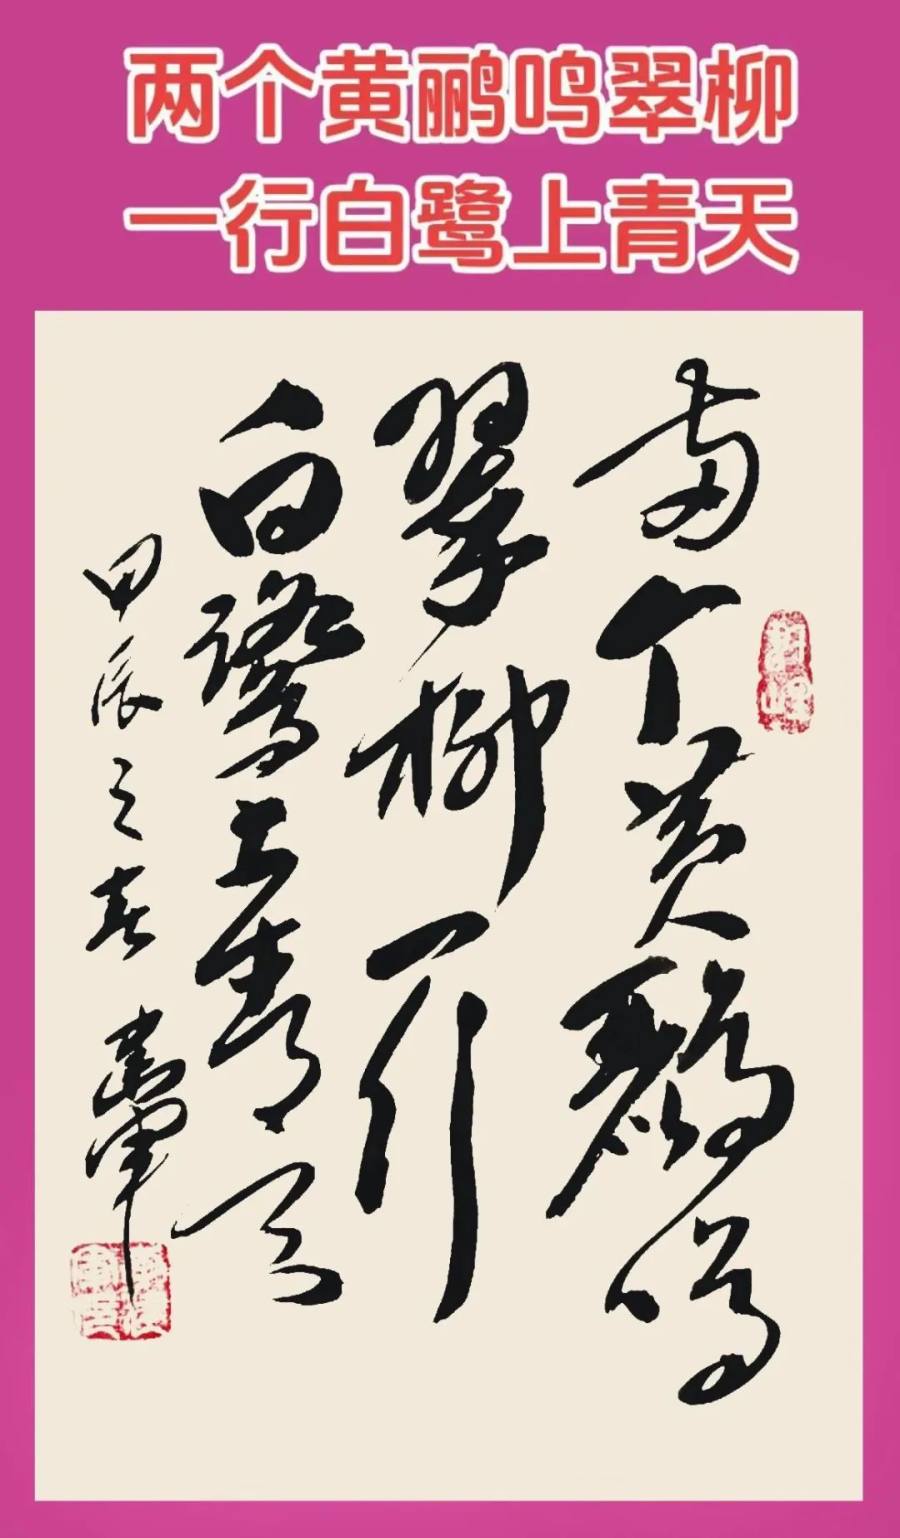 两个黄鹂鸣翠柳
一行白鹭上青天
两个黄鹂鸣
翠柳一行
白鹭上青天
甲辰之春